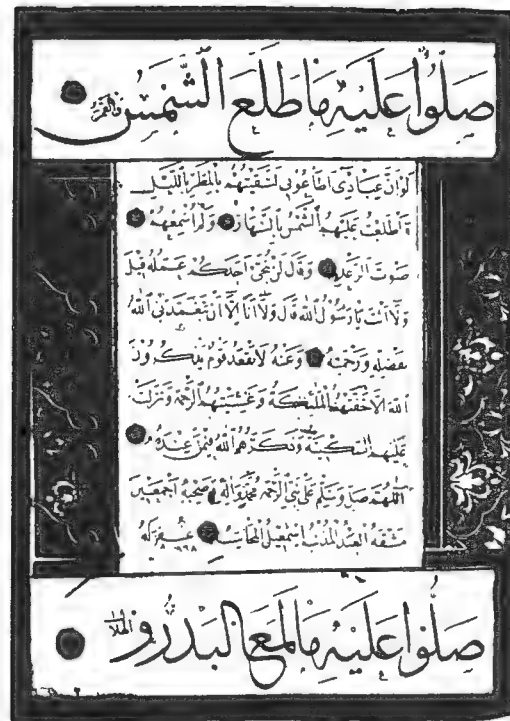 صَلُّوا عَلَيْهِ مَا طَلَعَ الشَّمْسُ وَالْقَمَرُ
لَوْ اَنَّ عِبَادِى اَطَاعُونِى لَسَقَيْتُهُمْ بِالْمَطَرِ بِاللَّيْلِ
وَاَطْلَعْتُ عَلَيْهِمُ الشَّمْسَ بِالنَّهَارِ وَلَمْ اُسْمِعْهُمْ
صَوْتَ الرَّعْدِ وَقَالَ لَنْ يُنْجِىَ اَحَدَكُمْ عَمَلُهُ قِيلَ
وَلَا اَنْتَ يَا رَسُولَ اللهِ قَالَ وَلَا اَنَا اِلَّا اَنْ يَتَغَمَّدَنِىَ اللهُ
بِفَضْلِهِ وَرَحْمَتِهِ وَعَنْهُ لَا يَقْعُدُ قَوْمٌ يَذْكُرُونَ
اللهَ اِلَّا حَفَّتْهُمُ الْمَلٰئِكَةُ وَغَشِيَتْهُمُ الرَّحْمَةُ وَنَزَلَتْ
عَلَيْهِمُ السَّكِينَةُ وَذَكَرَهُمُ اللهُ فِيمَنْ عِنْدَهُ
اَللّٰهُمَّ صَلِّ وَسَلِّمْ عَلَى نَبِىِّ الرَّحْمَةِ مُحَمَّدٍ وَاٰلِهِ وَصَحْبِهِ اَجْمَعِينَ
مَشَقَهُ الْعَبْدُ الْمُذْنِبُ اِسْمٰعِيلُ غُفِرَ لَهُ
صَلُّوا عَلَيْهِ مَا لَمَعَ الْبَدْرُ وَ